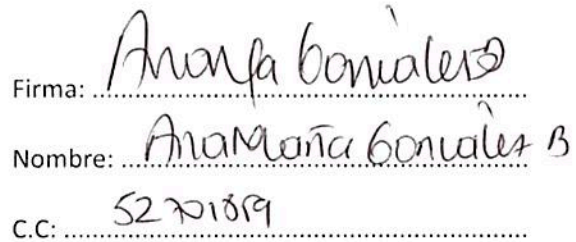 Firma: Anamaría González B
Nombre: Ana María González B
C.C: 52701859